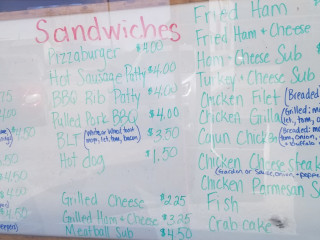 Sandwiches
Pizzaburger $4.00
Hot Sausage Patty $4.00
BBQ Rib Patty $4.00
Pulled Pork BBQ $4.00
BLT (White or Wheat toast mayo, let, tom, bacon) $3.50
Hot dog $1.50
Grilled Cheese $2.25
Grilled Ham + Cheese $3.25
Meatball Sub $4.50
Fried Ham
Fried Ham + Cheese
Ham + Cheese Sub
Turkey + Cheese Sub
Chicken Filet (Breaded
Chicken Grilla (Grilled; m
let, tom, o
Cajun Chicken (Breaded; ma
tom, onion,
+ buffalo
Chicken Cheese steak
(Garden or Sauce, onion, + pepper
Chicken Parmesan S
Fish
Crab cake
.75
4.50
.50
4.00
4.50